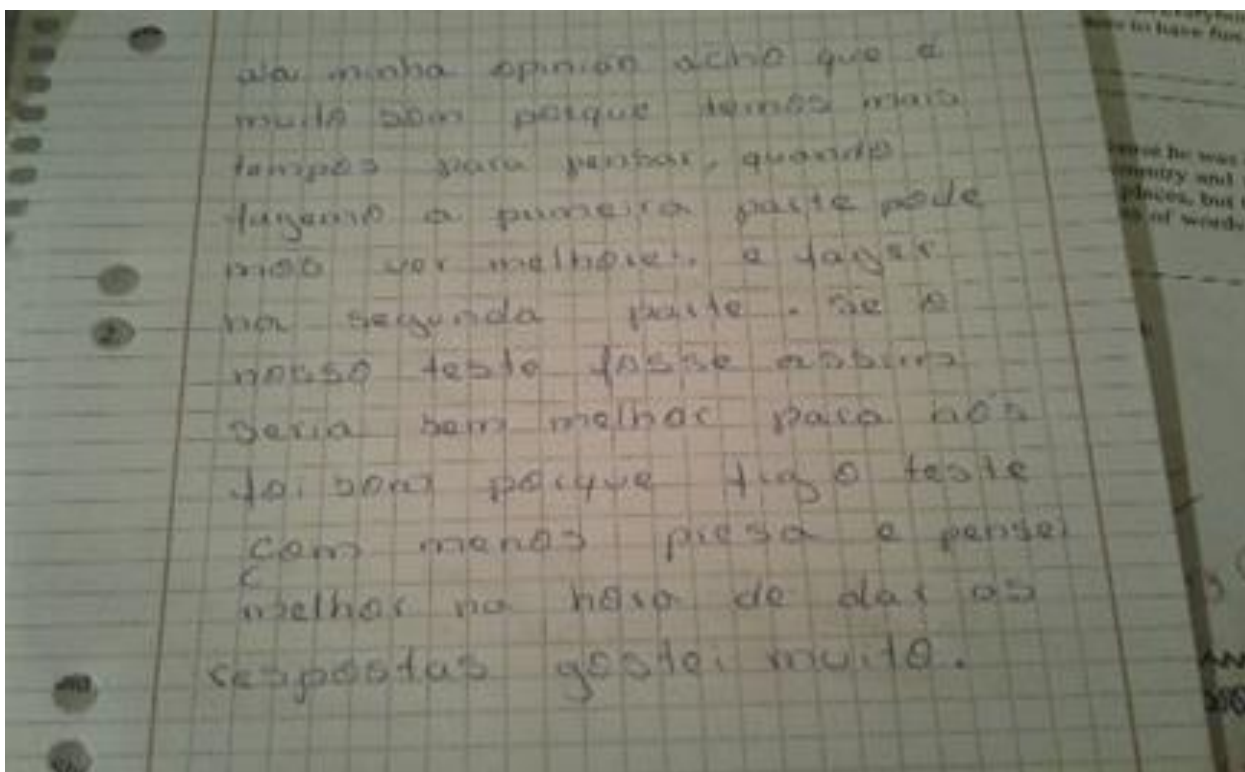 Na minha opinião acho que é
muito bom porque temos mais
tempos para pensar, quando
fazemo a pumeira parte pode
mos ver melhores. e fazer
na segunda parte. Se o
nosso teste fosse assim
seria bem melhor para nós
foi bom porque fiz o teste
com menos presa e pensei
melhor na hora de dar as
respostas gostei muito.
to have fun
he was
and
places, but
of words